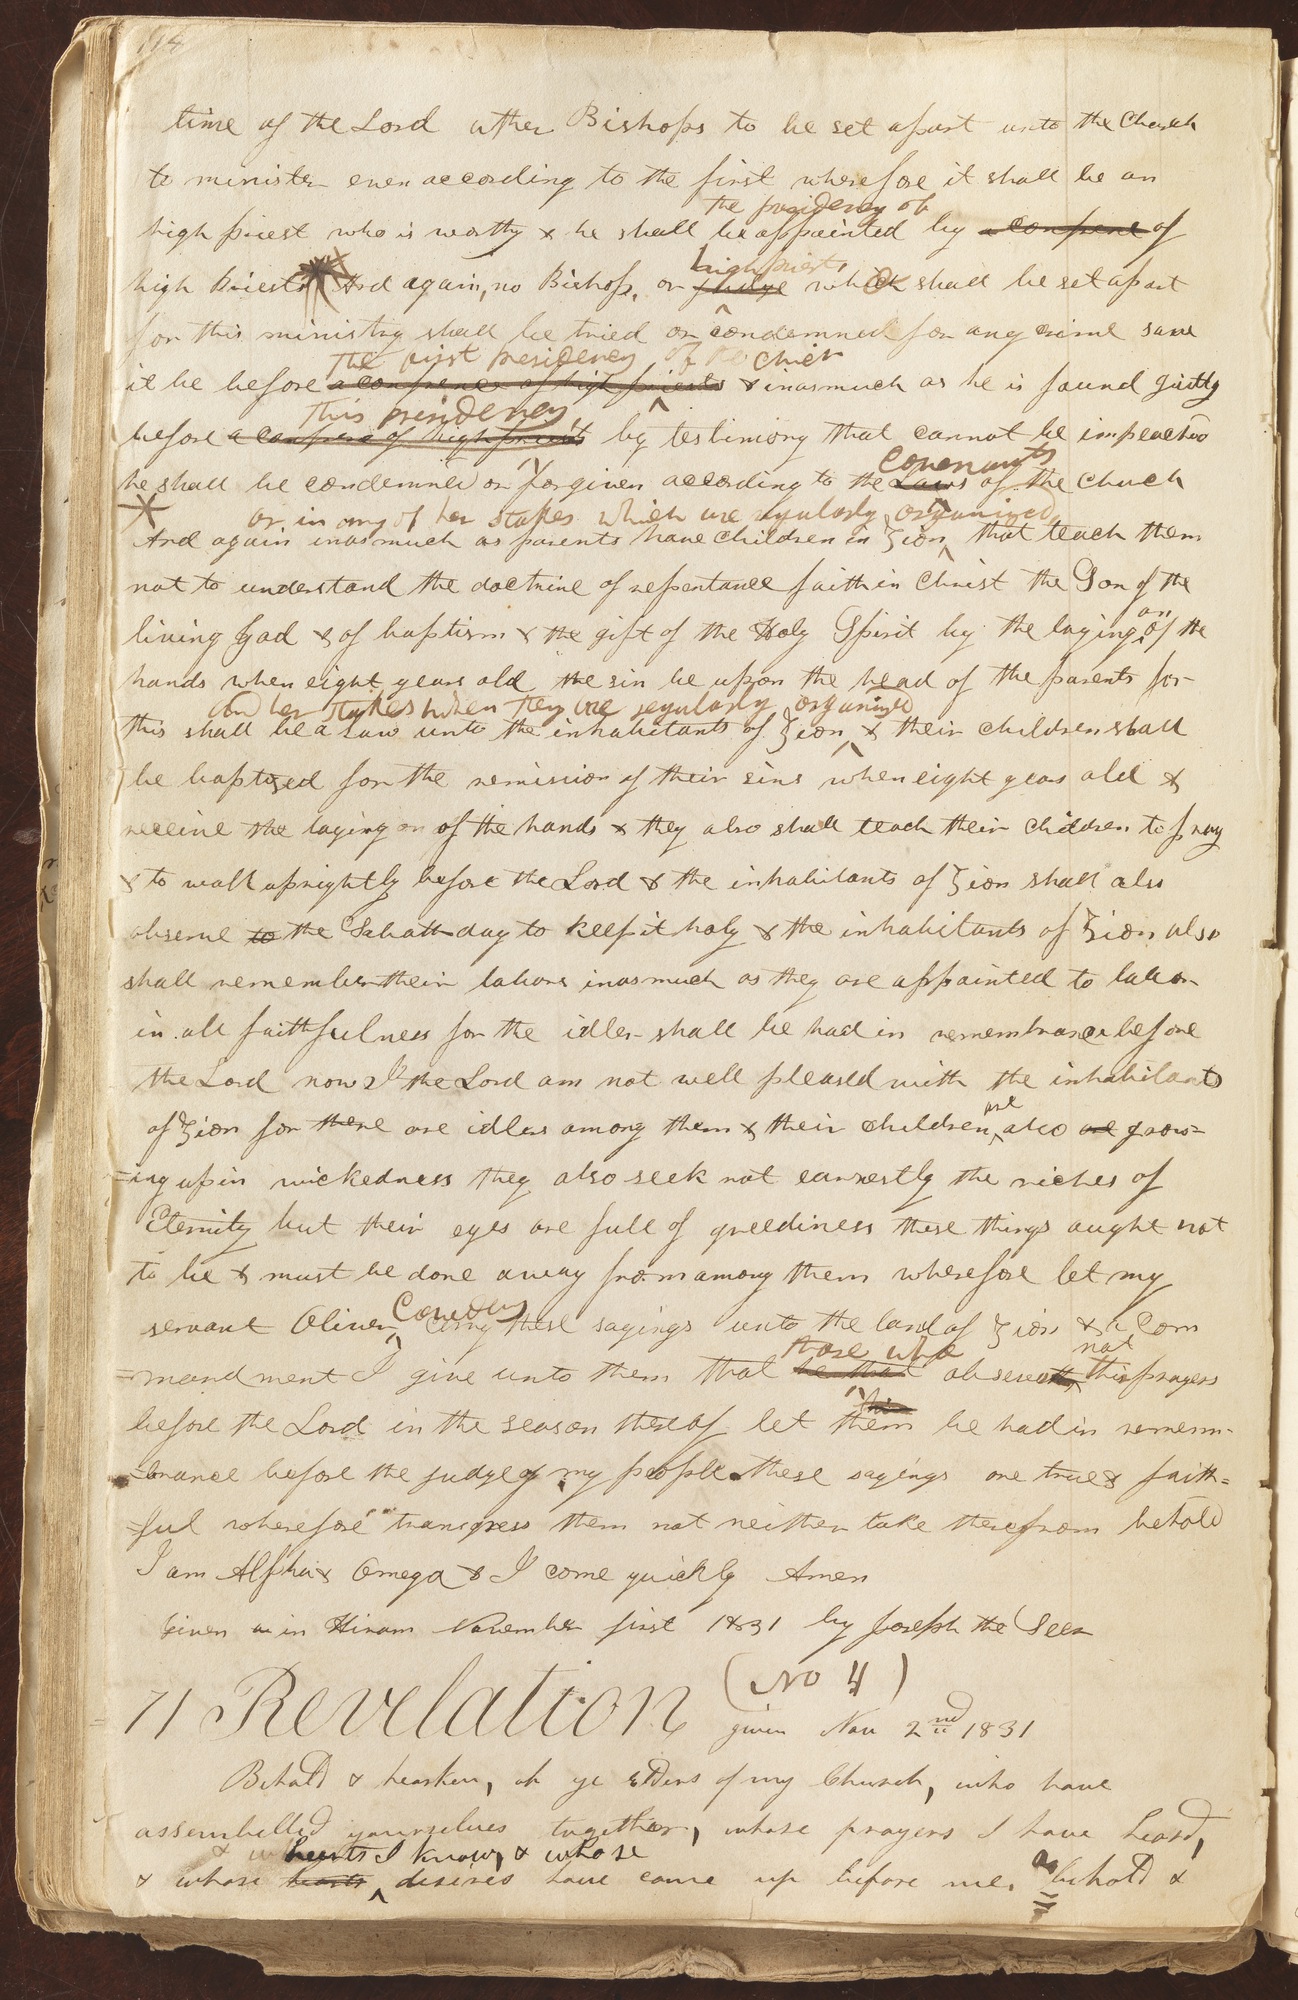 114
time of the Lord other Bishops to be set apart unto the Church
to minister even according to the first wherefore it shall be an
the presidency of
high priest who is worthy & he shall be appointed by a conferene of
high priests
high Priests And again, no Bishop, or judge which shall be set apart
for this ministry shall be tried or condemned for any crime save
the first presidency of the church
it be before a conference of high priests & inasmuch as he is found guilty
this presidency
before a conferce of high priests by testimony that cannot be impeached
covenants
he shall be condemned or forgiven according to the Laws of the church
or in any of her stakes which are regularly organized
And again inasmuch as parents have children in Zion that teach them
not to understand the doctrine of repentance faith in Christ the Son of the
living God & of baptism & the gift of the Holy Spirit by the laying on of the
hands when eight years old the sin be upon the head of the parents for
and her stakes when they are regularly organized
this shall be a law unto the inhabitants of Zion & their children shall
be baptized for the remission of their sins when eight years old &
receive the laying on of the hands & they also shall teach their children to pray
& to walk uprightly before the Lord & the inhabitants of Zion shall also
observe to the Sabath day to keep it holy & the inhabitants of Zion also
shall remember their labors inasmuch as they are appointed to labor
in all faithfulness for the idler shall be had in remembrance before
the Lord now I the Lord am not well pleased with the inhabitants
are
of Zion for there are idlers among them & their children also are grow=
=ing up in wickedness they also seek not earnestly the riches of
Eternity but their eyes are full of greediness these things aught not
to be & must be done away from among them wherefore let my
Cowdery
servant Oliver carry these sayings unto the land of Zion & a Com
those who not
=mandment I give unto them that he that observeth this prayers
him
before the Lord in the season thereof let them be had in remem-
=brance before the judge of my people these sayings are true & faith=
=ful wherefore transgress them not neither take therefrom behold
I am Alpha & Omega & I come quickly Amen
Given in Hiram November first 1831 by Joseph the Seer
71 Revelation (No 4)
given Nov 2nd 1831
Behold & hearken, oh ye Elders of my Church, who have
assembelled yourselves together, whose prayers I have heard,
hearts I know, & whose
& whose hearts desires have come up before me. behold &